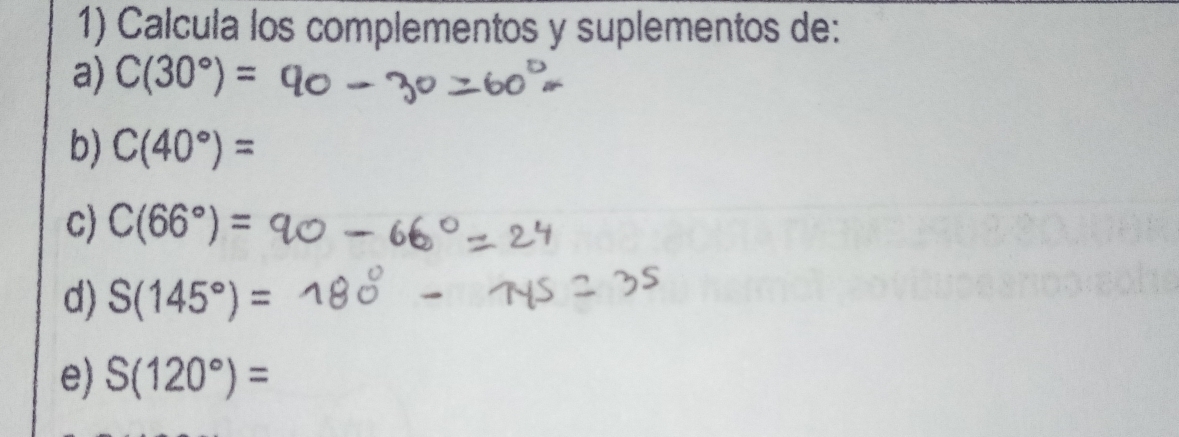 1) Calcula los complementos y suplementos de:
a) C(30°) = 90 - 30 = 60°
b) C(40°) =
c) C(66°) = 90 - 66° = 24
d) S(145°) = 180° - 145 = 35
e) S(120°) =